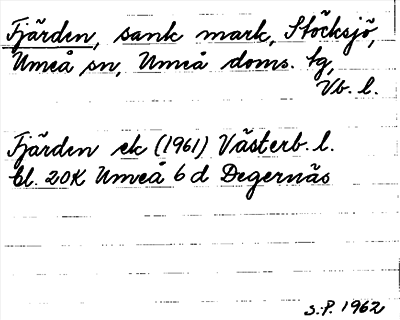 Fjärden, sank mark, Stöcksjö,
Umeå sn, Umeå doms. tg,
Vb. l.
Fjärden ek (1961) Västerb. l.
bl. 20K Umeå 6 d Degernäs
S.P. 1962